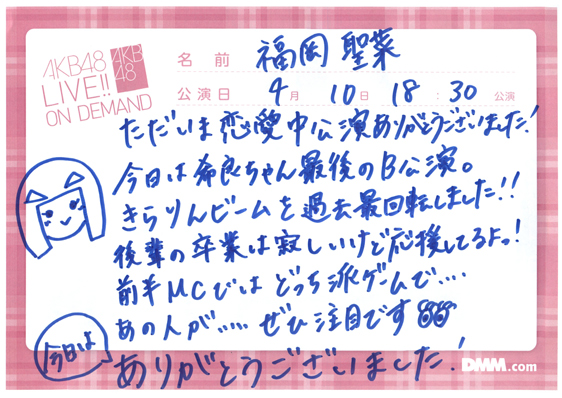 AKB48
LIVE!!
ON DEMAND
AKB
48
名前 福岡 聖菜
公演日 4月 10日 18:30 公演
ただいま恋愛中公演ありがとうございました!
今日は希良ちゃん最後のB公演。
きらりんビームを過去最回転しました!!
後輩の卒業は寂しいけど応援してるよっ!
前半MCではどっち派ゲームで....
あの人が..... ぜひ注目です
今日は
ありがとうございました!
DMM.com